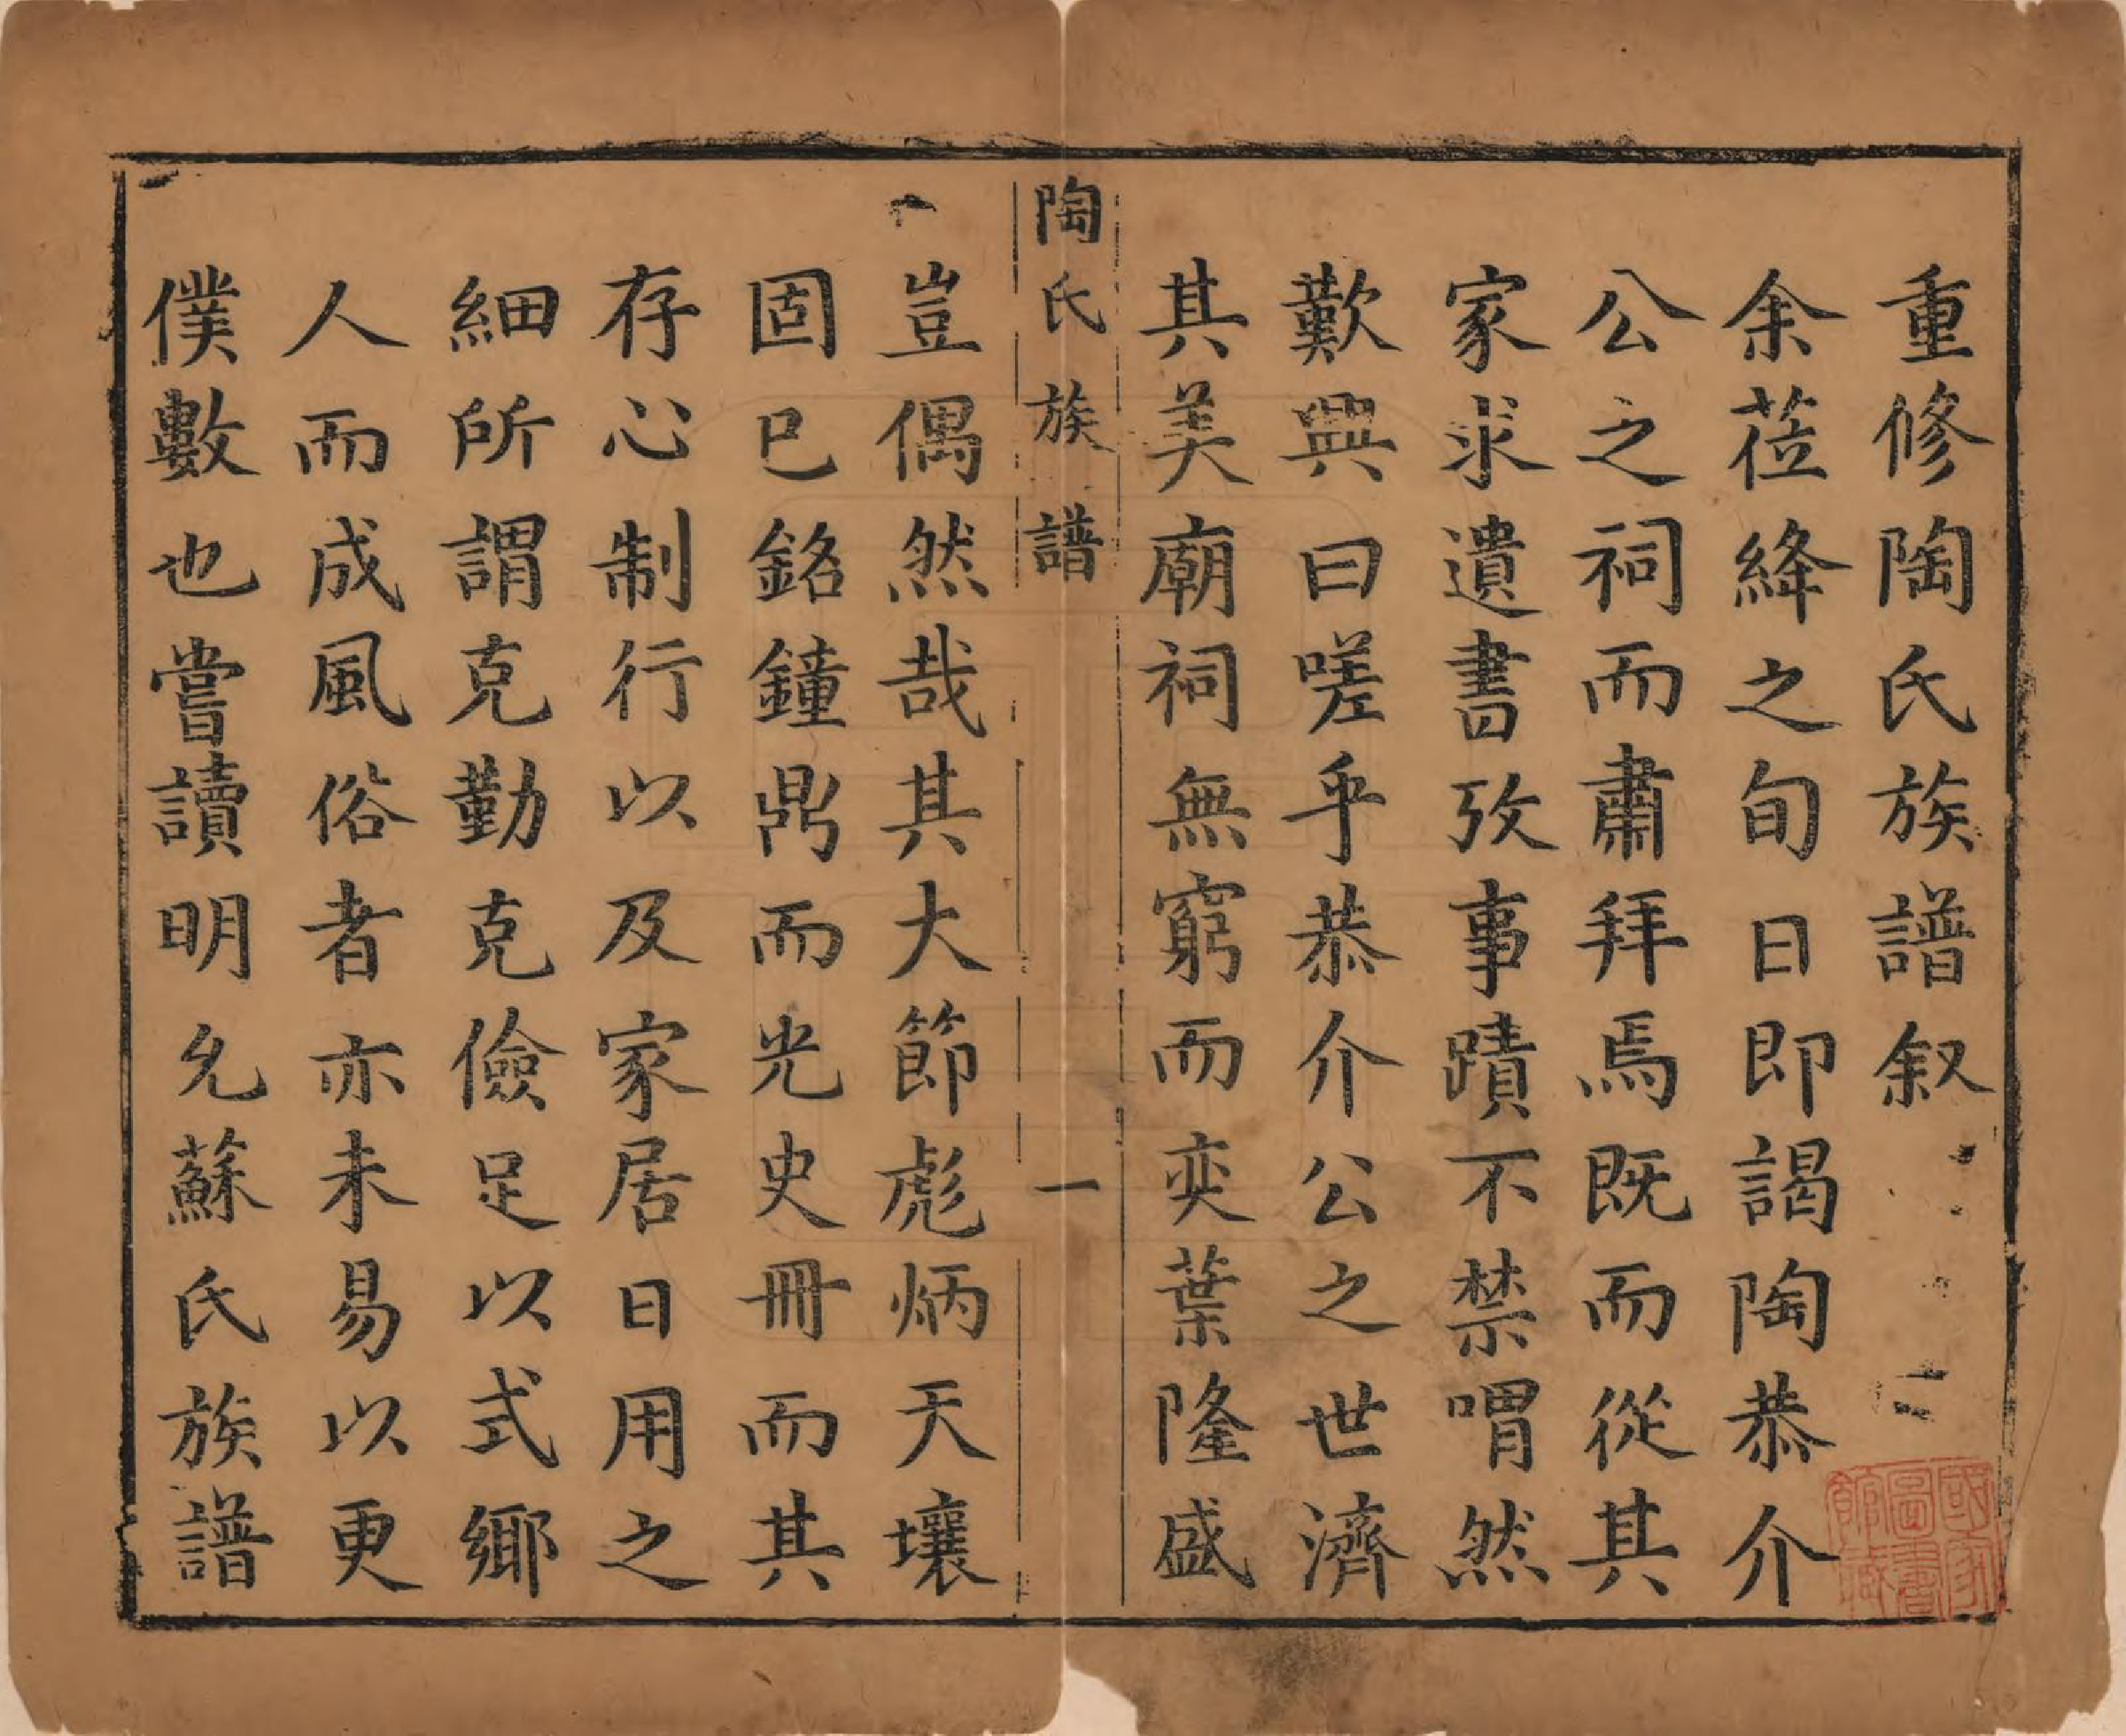 重修陶氏族譜叙
余莅絳之旬日即謁陶恭介
公之祠而肅拜焉既而從其
家求遺書攷事蹟不禁喟然
歎興曰嗟乎恭介公之世濟
其美廟祠無窮而奕葉隆盛
陶氏族譜 一
豈偶然哉其大節彪炳天壤
固已銘鐘鼎而光史冊而其
存心制行以及家居日用之
細所謂克勤克儉足以式鄉
人而成風俗者亦未易以更
僕數也嘗讀明允蘇氏族譜
國家圖書館藏